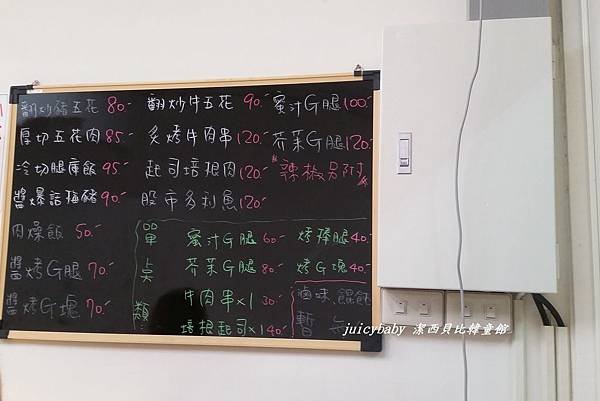 翻炒豬五花 80.- 翻炒牛五花 90.- 蜜汁G腿 100.-
厚切五花肉 85.- 炙烤牛肉串 120.- 芥茉G腿 120.-
冷切腿庫飯 95.- 起司培根肉 120.- *辣椒另附*
醬爆話梅豬 90.- 股市多利魚 120.-
肉燥飯 50.-
醬烤G腿 70.-
醬烤G塊 70.-
單點類
蜜汁G腿 60.- 烤棒腿 40.-
芥茉G腿 80.- 烤G塊 40.-
牛肉串x1 30.-
培根起司x1 40.-
滷味.餛飩
暫
juicybaby 潔西貝比韓童館